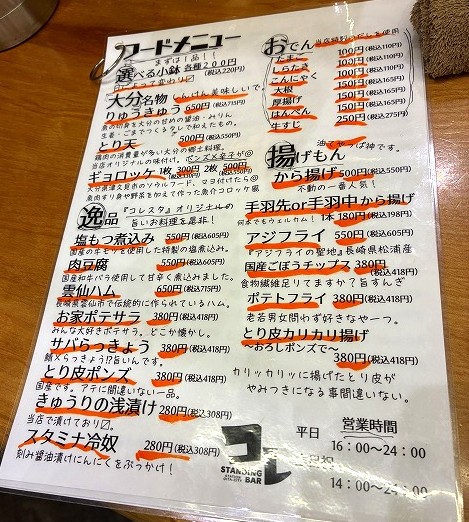 フードメニュー
まずは1品！！
選べる小鉢 各種200円
(税込220円)
日によって変わり〼
大分名物 しんけん美味しいで。
りゅうきゅう 650円(税込715円)
魚の切身を大分の甘めの醤油・みりん
生姜・ごまでつくるタレで和えたもの。
とり天 500円(税込550円)
鶏肉の消費量が多い大分の郷土料理。
当店オリジナルの味付け。ポンズ×辛子が◎
ギョロッケ 1枚300円 2枚500円
(税込330円) (税込550円)
大分県津久見市のソウルフード、マヨ付けたら◎
魚肉すり身や野菜をねって作った魚介コロッケ風
逸品 『コレスタ』オリジナルの
旨いお料理を是非！
塩もつ煮込み 550円(税込605円)
国産の牛モツを使用した特製の塩煮込み。
肉豆腐 550円(税込605円)
国産和牛バラ使用して甘辛く煮込みました。
雲仙ハム 650円(税込715円)
長崎県雲仙市で伝統的に作られているハム。
お家ポテサラ 380円(税込418円)
みんな大好きポテサラ。どこか懐かし。
サバらっきょう 380円(税込418円)
鯖×らっきょう!?旨いんです。
とり皮ポンズ 380円(税込418円)
国産です。アテに間違いない一品。
きゅうりの浅漬け 280円(税込308円)
当店で漬けており〼。
スタミナ冷奴 280円(税込308円)
刻み醤油漬けにんにくをぶっかけ！
おでん 当店特製の
たまご 100円(税込110円)
しらたき 100円(税込110円)
こんにゃく 100円(税込110円)
大根 150円(税込165円)
厚揚げ 150円(税込165円)
はんぺん 150円(税込165円)
牛すじ 250円(税込275円)
揚げもん 油でやっぱ神です。
から揚げ 500円(税込550円)
不動の一番人気！
手羽先or手羽中から揚げ
何本でもウェルカム！ 1本180円(税込198円)
アジフライ 550円(税込605円)
『アジフライの聖地』長崎県松浦産
国産ごぼうチップス 380円(税込418円)
食物繊維足りてますか？旨すんぎ
ポテトフライ 380円(税込418円)
老若男女問わず好きなやーつ。
とり皮カリカリ揚げ
〜おろしポンズで〜
380円(税込418円)
カリッカリッに揚げたとり皮が
やみつきになる事間違いない。
コレ
STANDING BAR
営業時間
平日 16:00〜24:00
14:00〜24:00